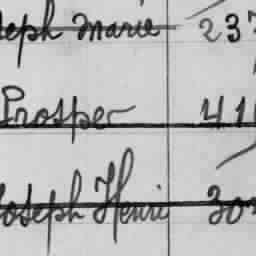 eph Marie 237
Prosper 41
oseph Henri 30